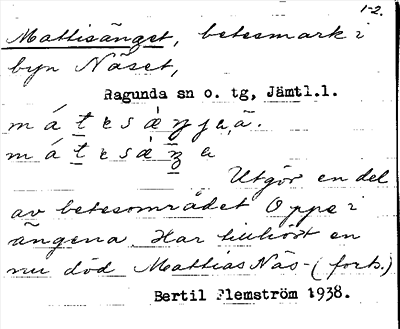 1-2.
Mattisänget, betesmark i
byn Näset,
Ragunda sn o. tg, Jämtl.l.
Utgör en del
av betesområdet Oppe i
ängena. Har tillhört en
nu död Mattias Näs- (forts.)
Bertil Flemström 1938.